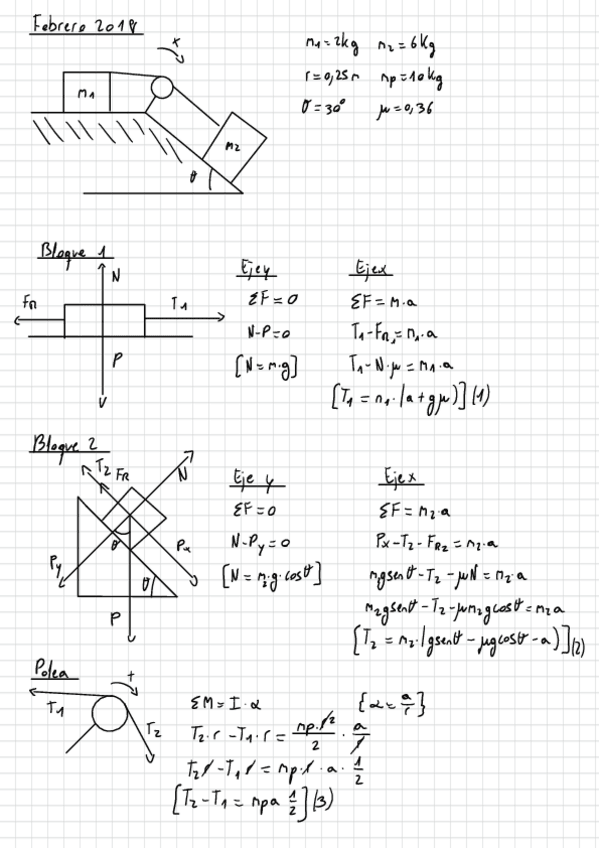 Febrero 2018
+
m1
m2
θ
m1=2kg m2=6kg
r=0,25m mp=10kg
θ=30° μ=0,36
Bloque 1
N
FR
T1
P
Eje y
ΣF=0
N-P=0
[N=m·g]
Eje x
ΣF=m·a
T1-FR1=m1·a
T1-N·μ=m1·a
[T1=m1·(a+gμ)](1)
Bloque 2
T2
FR
N
θ
Px
Py
θ
P
Eje y
ΣF=0
N-Py=0
[N=m2·g·cosθ]
Eje x
ΣF=m2·a
Px-T2-FR2=m2·a
mgsenθ-T2-μN=m2·a
m2gsenθ-T2-μm2gcosθ=m2a
[T2=m2·(gsenθ-μgcosθ-a)](2)
Polea
+
T1
T2
ΣM=I·α {α=a/r}
T2·r-T1·r=mp·r²/2·a/r
T2r-T1r=mp·r·a·1/2
[T2-T1=mpa 1/2](3)